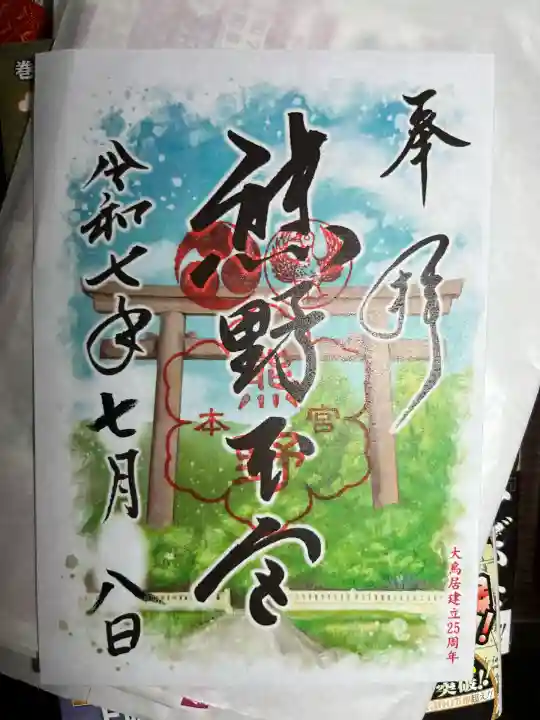 奉拝
熊野本宮
令和七年七月八日
熊野
本宮
大鳥居建立25周年
巻
突破!